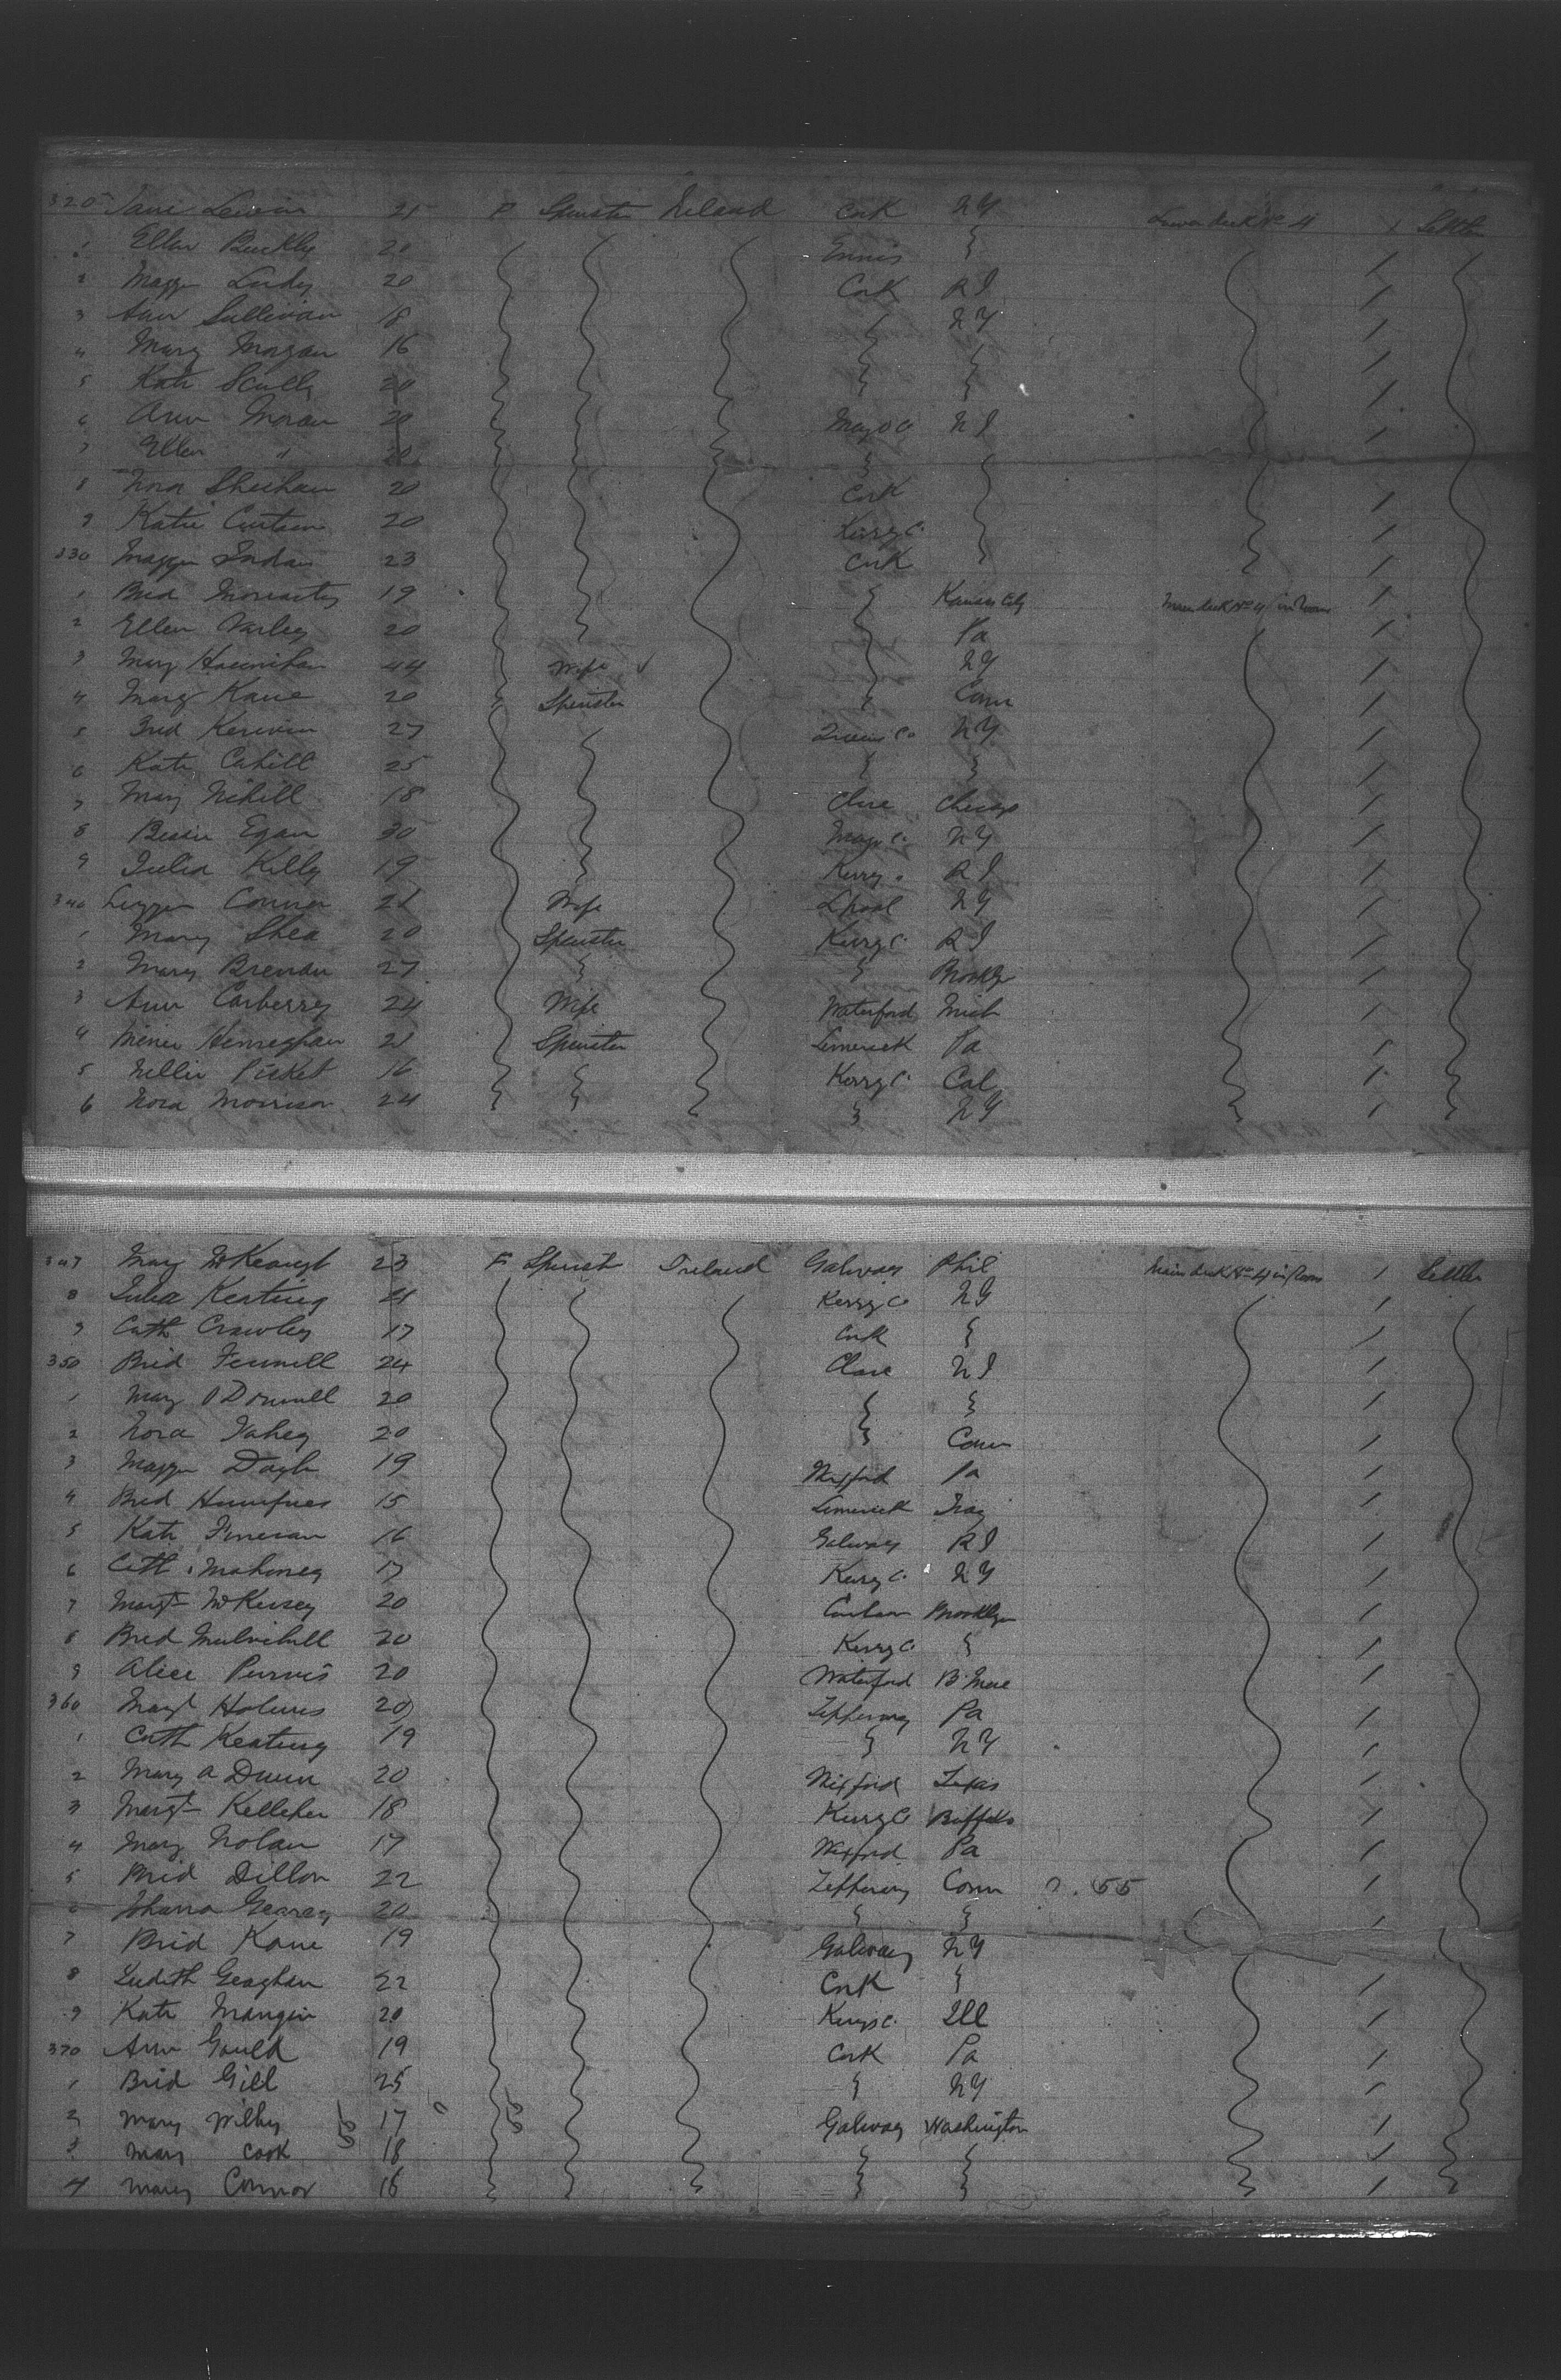 320 Jane 21 F Spinster Ireland Cork NY Lower deck No 4 1 Settler
1 Ellen Buckly 20 Ennis
2 Maggie 20 Cork R I
3 Ann Sullivan 18 NY
4 Mary Morgan 16
5 Kate Scully 20
6 Ann Moran 20 Mayo Co N J
7 Ellen " 20
8 Nora Sheehan 20 Cork
9 Katie 20 Kerry C.
330 Maggie 23 Cork
1 Brid Moriarty 19 Kansas City Main deck No 4 in Room
2 Ellen Varley 20 Pa
3 Mary Hounihan 44 Wife ✓ NY
4 Mary Kane 20 Spinster Conn
5 Brid Kerwin 27 Queens Co NY
6 Kate Cahill 25
7 Mary Nihill 18 Clare Chicago
8 Bessie Egan 30 Mayo C. NY
9 Julia Kelly 19 Kerry R I
340 Lizzie Connor 21 Wife Lpool NY
1 Mary Shea 20 Spinster Kerry C. R I
2 Mary Brendan 27 Brooklyn
3 Ann Carberry 24 Wife Waterford Mich
4 Henneghan 21 Spinster Limerick Pa
5 Nellie Picket 16 Kerry C. Cal
6 Nora Morrison 24 NY
347 Mary McKeough 23 F Spinst Ireland Galway Phil Main deck No 4 in Room 1 Settler
8 Julia Keating 21 Kerry Co NY
9 Cath Crawley 17 Cork
350 Brid Fennell 24 Clare N J
1 Mary O Donnell 20
2 Nora Fahey 20 Conn
3 Maggie Doyle 19 Wexford Pa
4 Brid Humfries 15 Limerick Troy
5 Kate Fineran 16 Galway R I
6 Cath Mahoney 17 Kerry C. NY
7 Margt McKersey 20 Brooklyn
8 Brid Mulvihill 20 Kerry C.
9 Alice Purvis 20 Waterford B. More
360 Margt Holmes 20 Tipperary Pa
1 Cath Keating 19 NY
2 Mary A Dunn 20 Wexford Texas
3 Margt Kelleher 18 Kerry C Buffalo
4 Mary Nolan 17 Wexford Pa
5 Brid Dillon 22 Tipperary Conn 55
6 Johanna Gearey 20
7 Brid Kane 19 Galway NY
8 Judith Geaghan 22 Cork
9 Kate Mangin 20 Kings C. Ill
370 Ann Gould 19 Cork Pa
1 Brid Gill 25 NY
2 Mary Wilby 17 Galway Washington
3 Mary Cook 18
4 Mary Connor 16